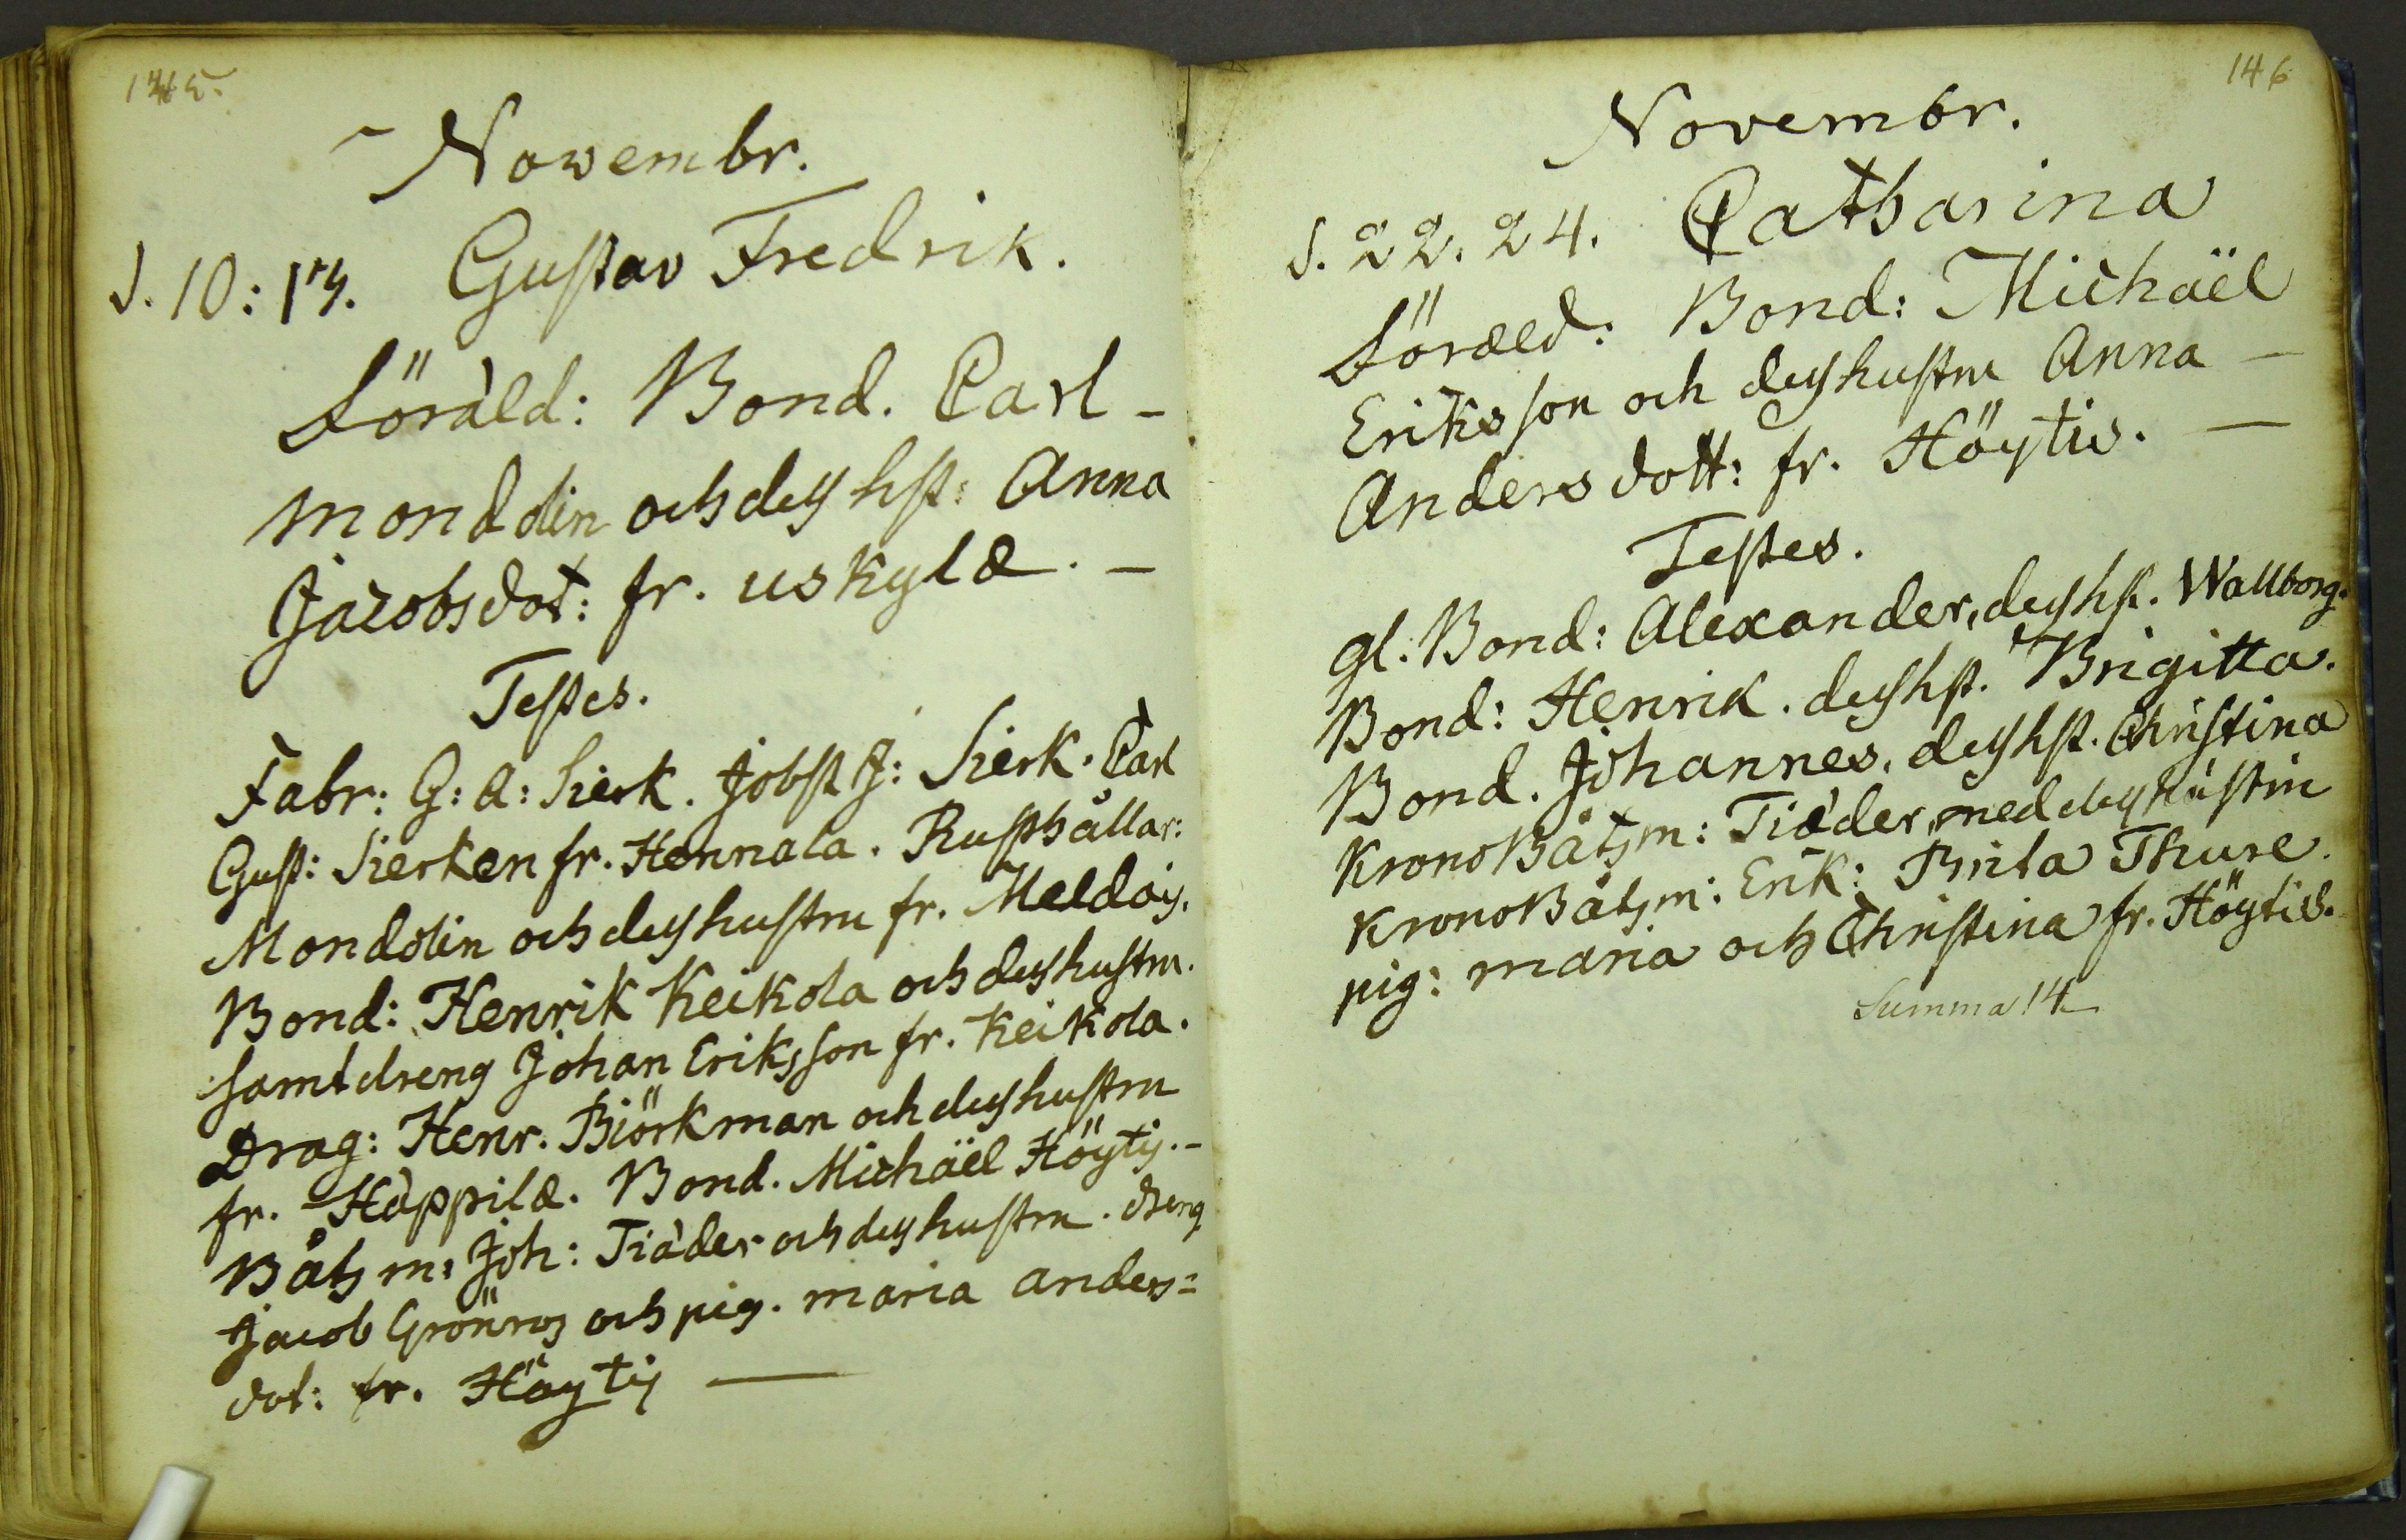 145.
Novembr.
d. 10: 17. Gustav Fredrik.
Föräld: Bond. Carl -
Monddin och dess hst: Anna
Jacobsdot: fr. uskylæ. -
Testes.
Fabr: G: A: Sierk. Jobst J: Sierk. Carl
Gust: Sierken fr. Hennala. Rusthållar:
Mondolin och dess hustru fr. Meldöis.
Bond: Henrik Keikola och dess hustru.
samt dreng Johan Eriksson fr. Keikola.
Drag: Henr. Biörkman och dess hustru
fr. Häppilæ. Bond. Michäel Höytij. -
Båtzm: Joh: Tiäder och dess hustru. dreng
Jacob Grönros och pig. maria anders=
dot: fr. Höytij —
146
Novembr.
d. 22. 24. Catharina
Föræld: Bond: Michäel
Eriksson och dess hustru Anna —
Andersdott: fr. Höytis. —
Testes.
gl. Bond: Alexander, dess hst. Wallborg.
Bond: Henrik. dess hst. Brigitta.
Bond. Johannes. dess hst. Christina
KronoBåtzm: Tiæder, med dess hustru
KronoBåtzm: Erik: Brita Thure.
pig: maria och Christina fr. Höytis.
Summa 14